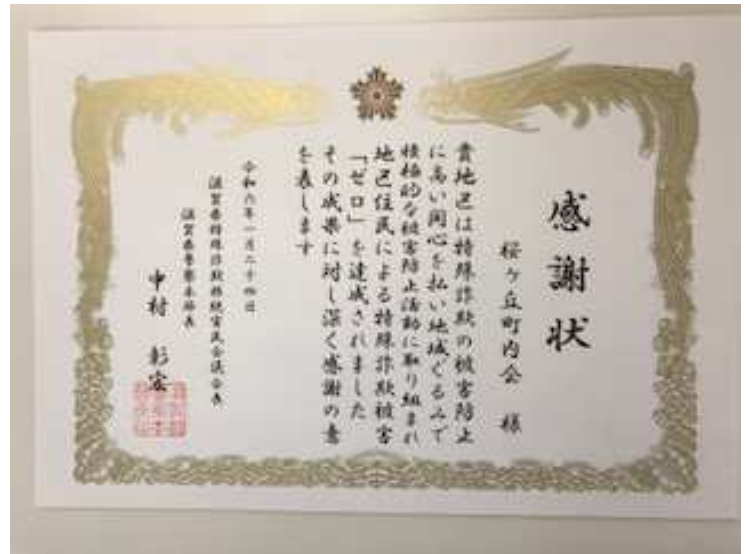 感謝状
桜ヶ丘町内会 様
貴地区は特殊詐欺の被害防止
に高い関心を払い地域ぐるみで
積極的な被害防止活動に取り組まれ
地区住民による特殊詐欺被害
「ゼロ」を達成されました
その成果に対し深く感謝の意
を表します
令和六年一月二十四日
滋賀県特殊詐欺撲滅官民会議会長
滋賀県警察本部長
中村 彰宏